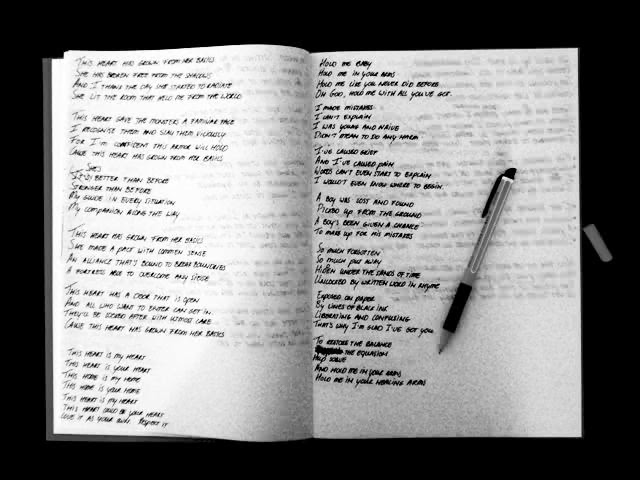 This heart has grown from her basics
She has broken free from the shadows
And I thank the day she started to radiate
She lit the room that held me from the world
This heart gave the monsters a familiar face
I recognise them and slay them viciously
For I'm confident this armor will hold
Cause this heart has grown from her basics
She's
better than before
Stronger than before
My guide in every situation
My companion along the way
This heart has grown from her basics
She made a pact with common sense
An alliance that's bound to break boundaries
A fortress able to overcome any siege
This heart has a door that is open
And all who want to enter can get in.
They'll be looked after with utmost care
Cause this heart has grown from her basics
This heart is my heart
This heart is your heart
This home is my home
This home is your home
This heart is my heart
This heart could be your heart
Love it as your own. Respect it
Hold me baby
Hold me in your arms
Hold me like you never did before
Oh God, hold me with all you've got.
I made mistakes
I can't explain
I was young and naïve
Didn't mean to do any harm
I've caused grief
And I've caused pain
Words can't even start to explain
I wouldn't even know where to begin
A boy was lost and found
Picked up from the ground
A boy's been given a chance
To make up for his mistakes
So much forgotten
So much put away
Hiden under the sands of time
Unlocked by written word in rhyme
Exposed on paper
By lines of black ink
Liberating and confusing
That's why I'm glad I've got you
To restore the balance
the equasion
Help solve
And hold me in your arms
Hold me in your healing arms